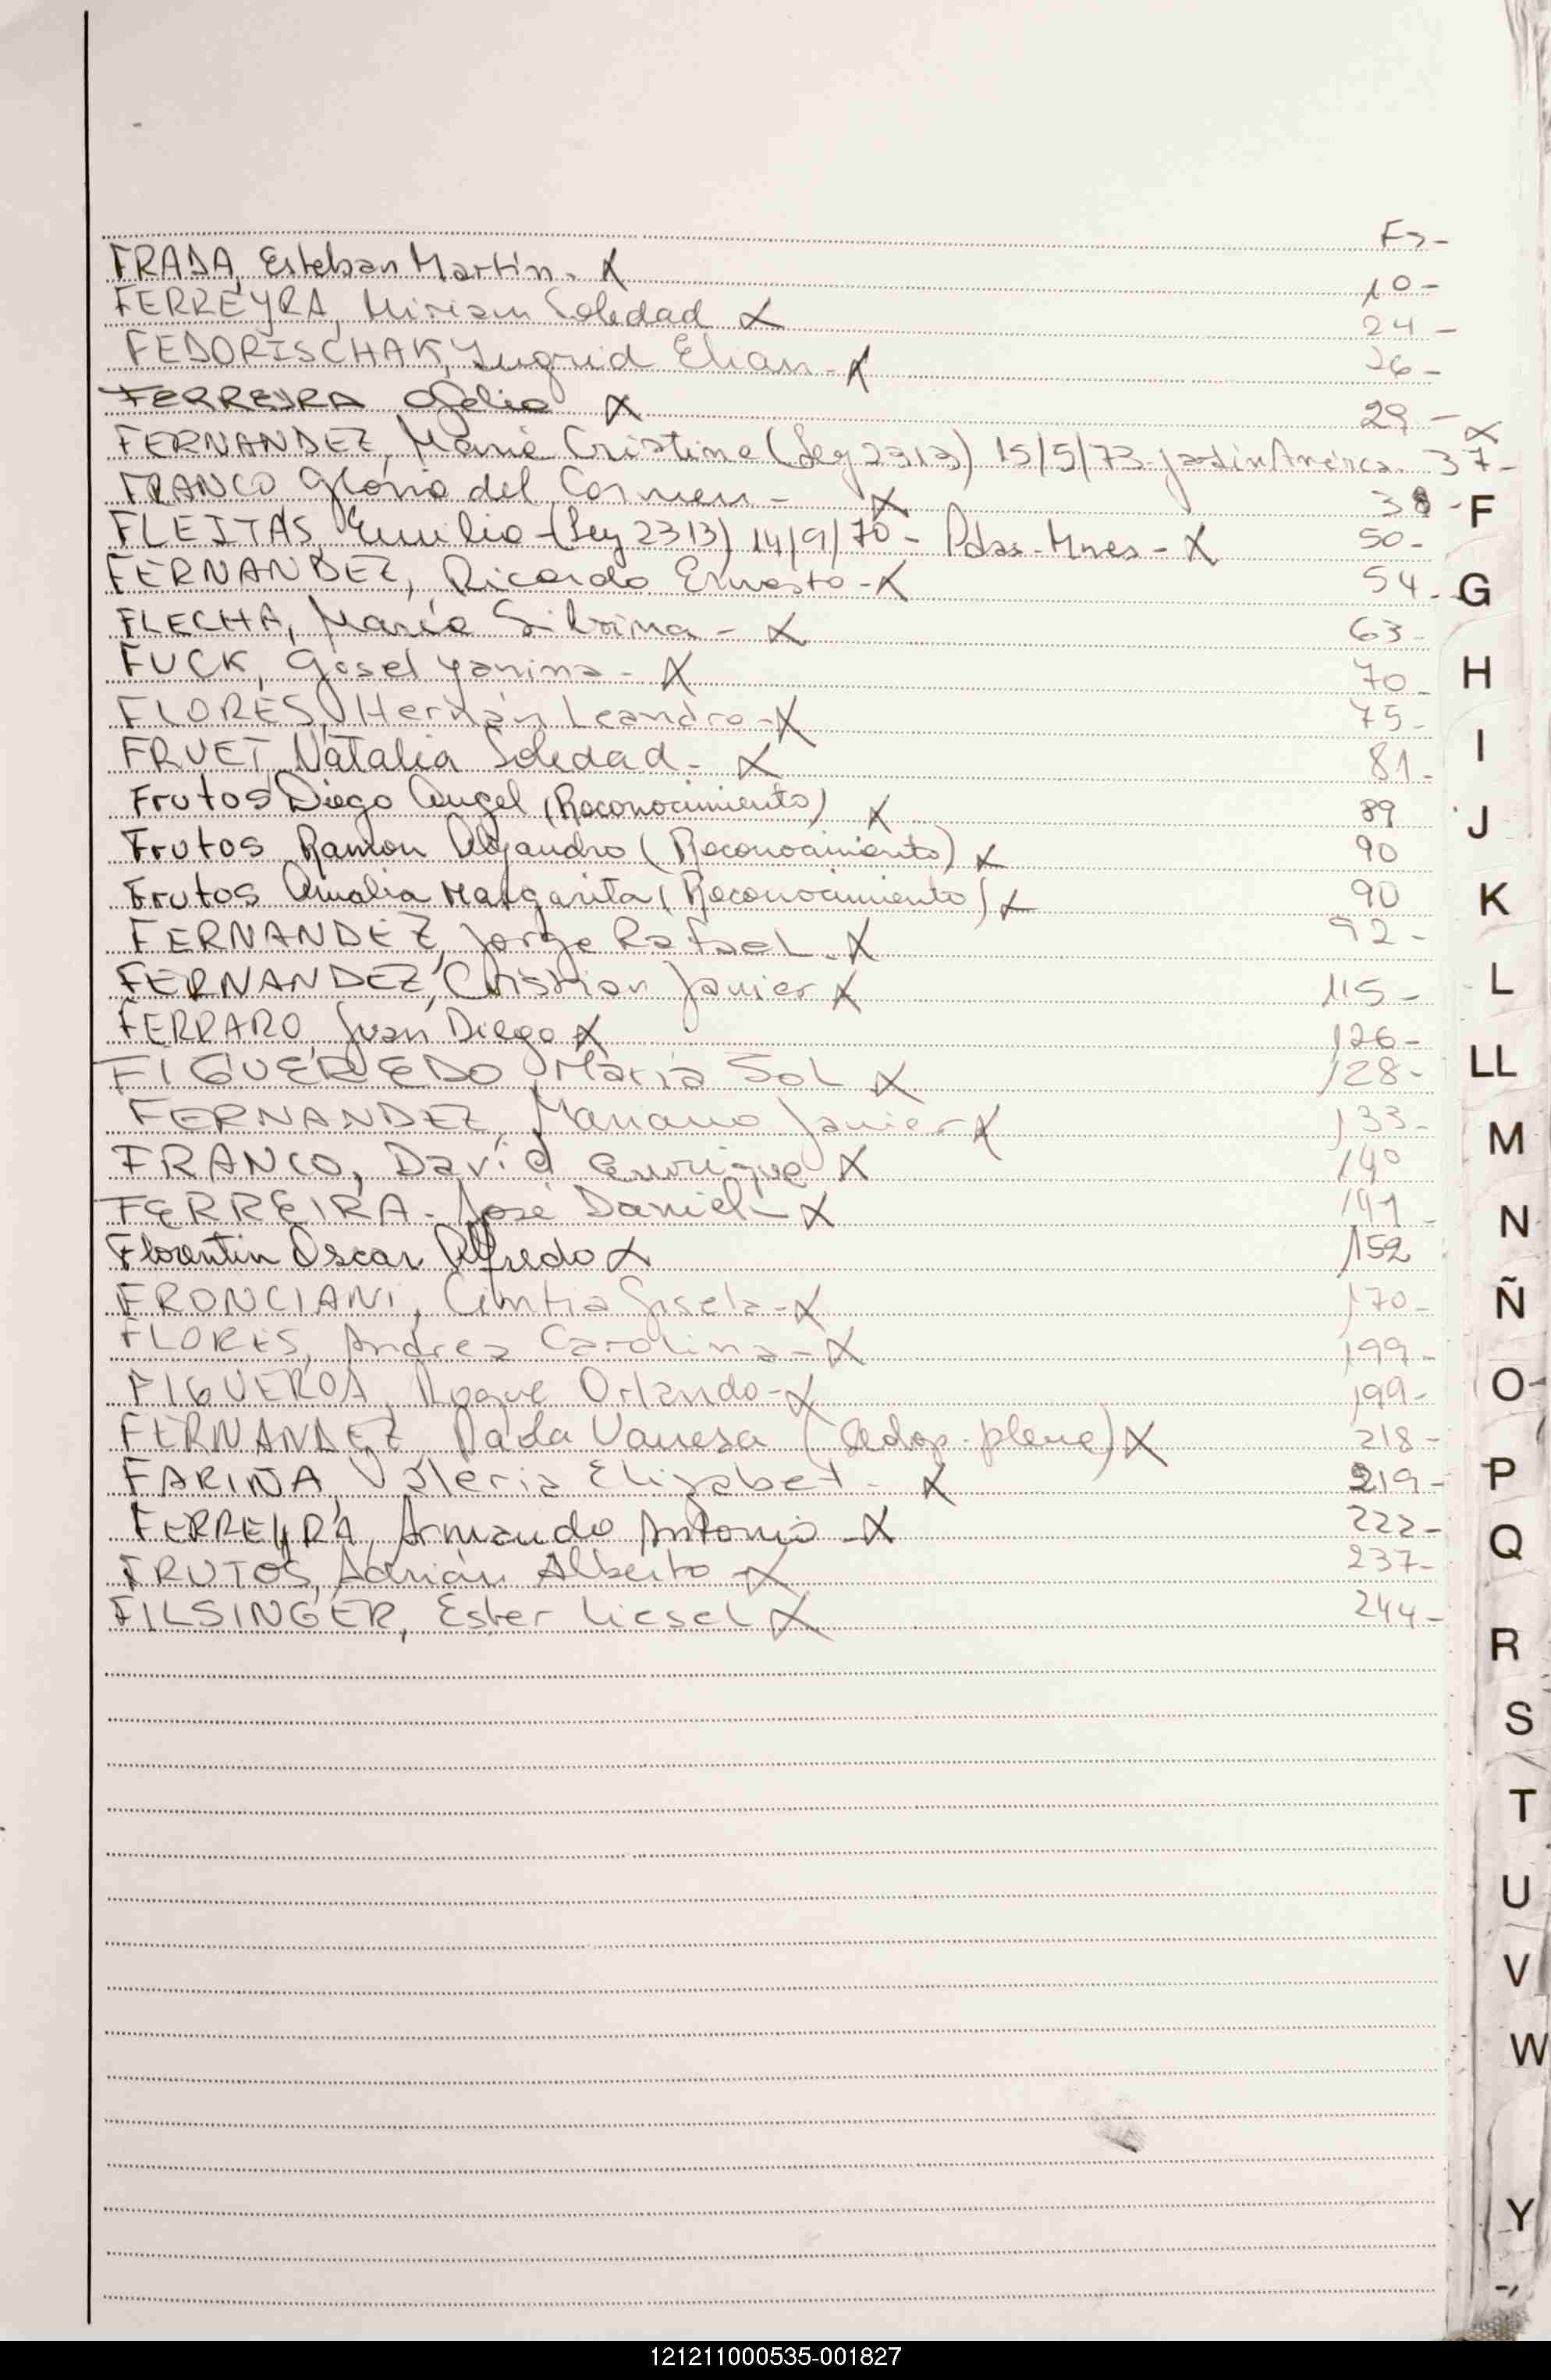 Fs-
FRADA, Esteban Martín. X 10-
FERREYRA, Miriam Soledad X 24-
FEDORISCHAK, Yngrid Elian - X 26-
FERREYRA Ofelia X 29-
FERNANDEZ, María Cristina (Ley 2313) 15/5/73 - Jardín América. 37- X
FRANCO Gloria del Carmen - X 38-
FLEITAS Emilio - (Ley 2313) 14/9/70 - Pdas - Mnes - X 50-
FERNANDEZ, Ricardo Ernesto - X 54-
FLECHA, María Silvina - X 63-
FUCK, Gisel Yanina - X 70-
FLORES, Hernán Leandro - X 75-
FRUET, Natalia Soledad - X 81-
Frutos Diego Angel (Reconocimiento) X 89
Frutos Ramon Alejandro (Reconocimiento) X 90
Frutos Amalia Margarita (Reconocimiento) X 90
FERNANDEZ, Jorge Rafael X 92-
FERNANDEZ, Cristian Javier X 115-
FERRARO, Juan Diego X 126-
FIGUEREDO, María Sol X 128-
FERNANDEZ, Mariano Javier X 133-
FRANCO, David Enrique X 140
FERREIRA - José Daniel - X 141-
Florentin Oscar Alfredo X 152
FRONCIANI, Cintia Gisela - X 170-
FLORES, Andrea Carolina - X 199-
FIGUEROA, Roque Orlando - X 199-
FERNANDEZ, Paola Vanesa (Adop. plena) X 218-
FARIÑA, Valeria Elizabet - X 219-
FERREYRA, Armando Antonio - X 222-
FRUTOS, Adrián Alberto - X 237-
FILSINGER, Ester Liesel X 244-
F
G
H
I
J
K
L
LL
M
N
Ñ
O
P
Q
R
S
T
U
V
W
Y
121211000535-001827